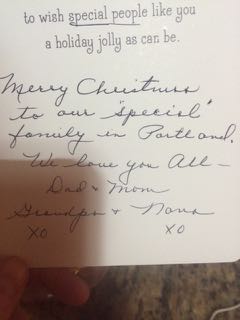 to wish special people like you
a holiday jolly as can be.
Merry Christmas
to our "special"
family in Portland.
We love you All –
Dad & Mom
Grandpa & Nana
XO XO